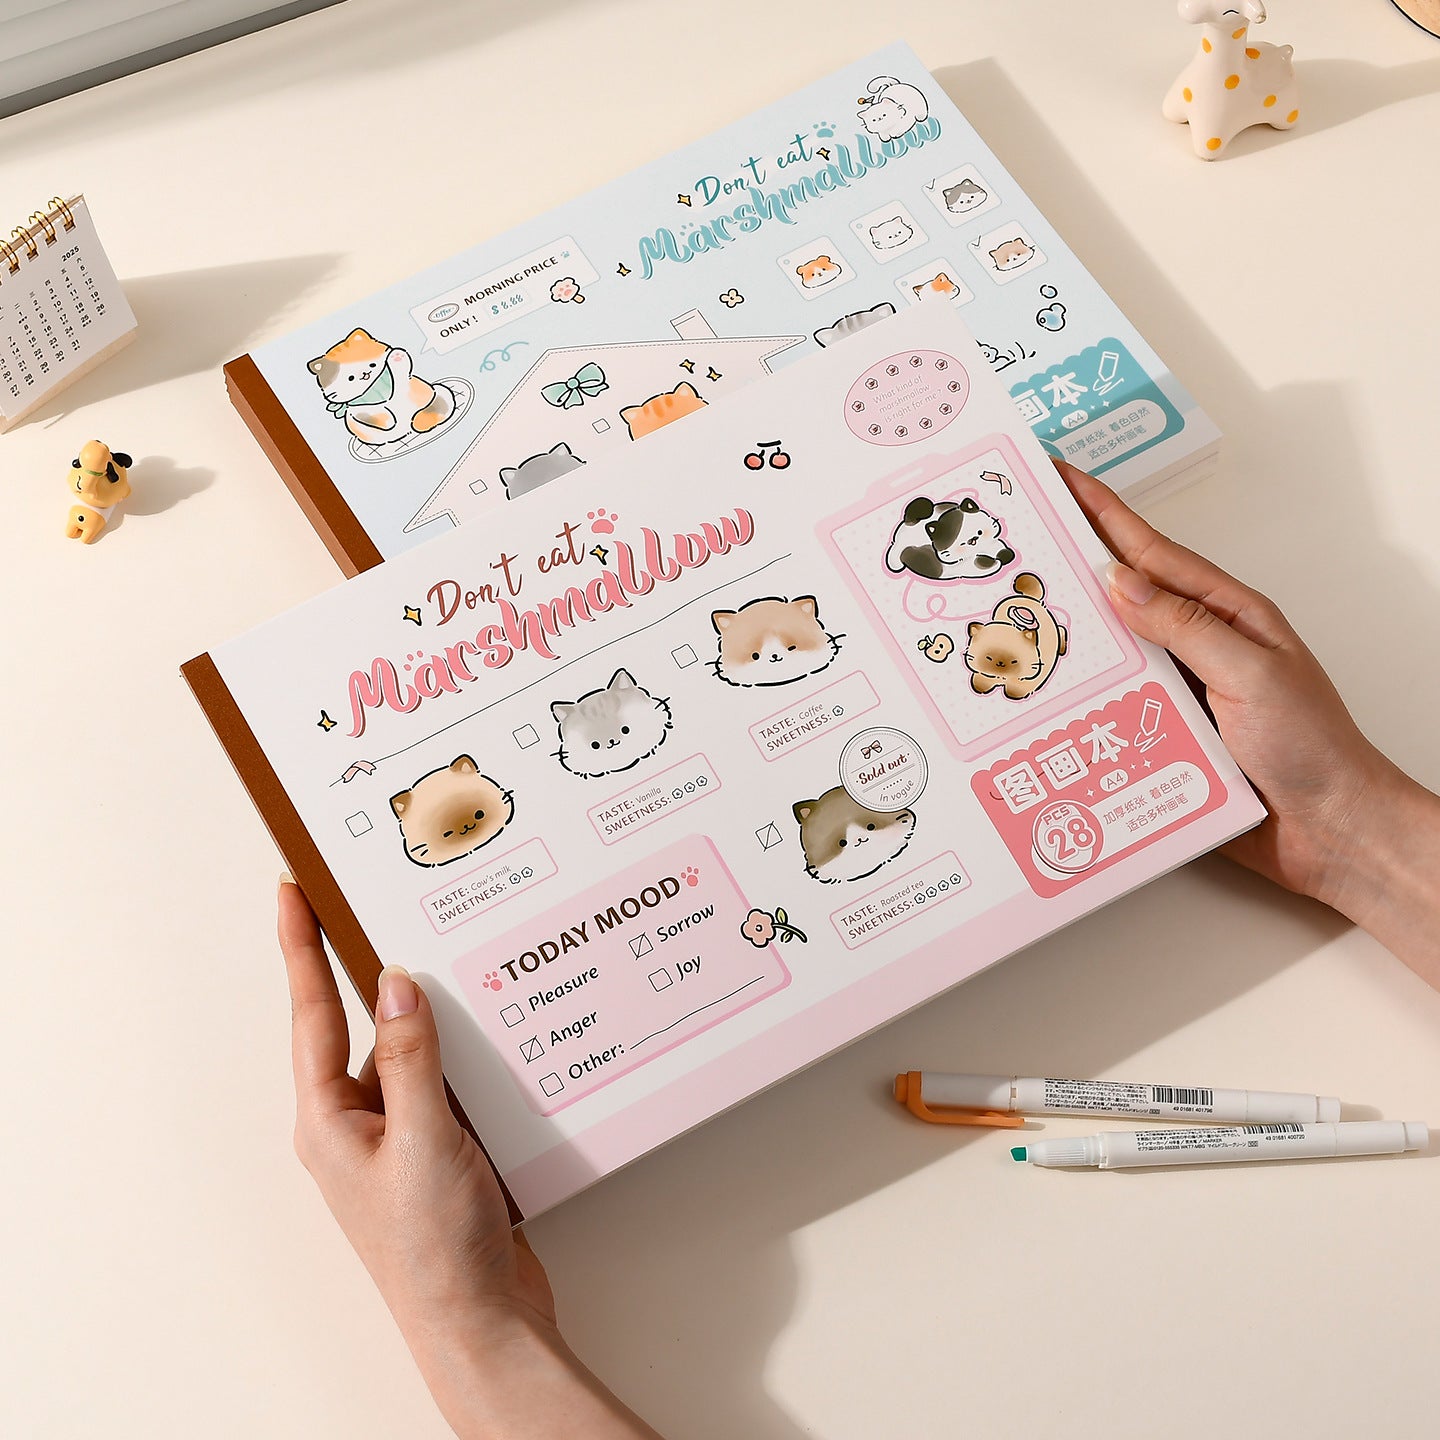 2025
Don't eat
Marshmallow
Offer
MORNING PRICE
ONLY!
$ 8.88
画本
A4
加厚纸张 着色自然
适合多种画笔
What kind of
marshmallow
is right for me?
Don't eat
Marshmallow
TASTE: Coffee
SWEETNESS:
TASTE: Vanilla
SWEETNESS:
TASTE: Cow's milk
SWEETNESS:
Sold out
in vogue
TASTE: Roasted tea
SWEETNESS:
图画本
A4
PCS
28
加厚纸张 着色自然
适合多种画笔
TODAY MOOD
Pleasure
Sorrow
Anger
Joy
Other:
49 01681 401796
49 01681 400720